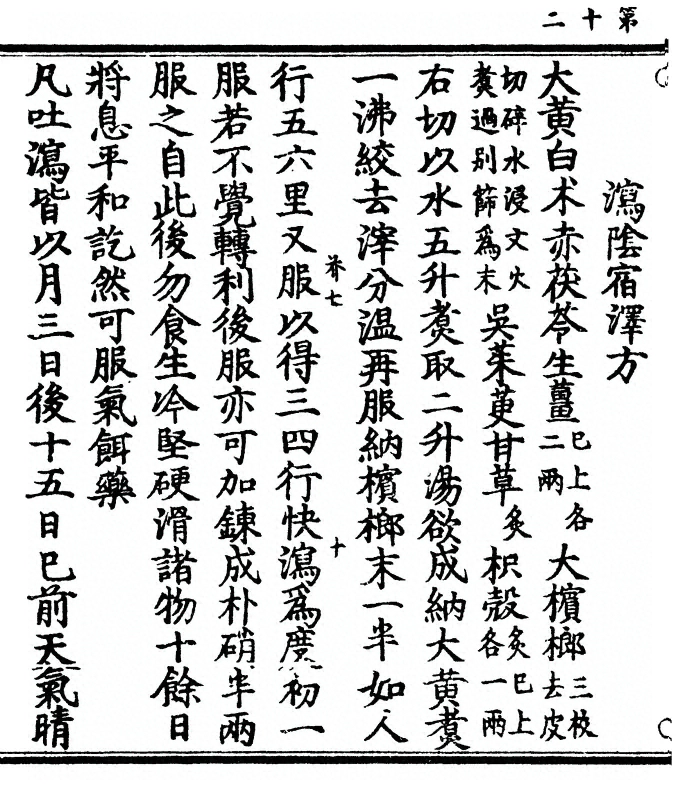 第十二
瀉陰宿澤方
大黃白朮赤茯苓生薑已上各二兩大檳榔三枚去皮
切碎水浸文火煑過别篩爲末吳茱萸甘草炙枳殼炙已上各一兩
右切以水五升煑取二升湯欲成納大黃煑
一沸絞去滓分温再服納檳榔末一半如人
行五六里又服以得三四行快瀉爲度初一
卷七
十
服若不覺轉利後服亦可加錬成朴硝半兩
服之自此後勿食生冷堅硬滑諸物十餘日
將息平和訖然可服氣餌藥
凡吐瀉皆以月三日後十五日已前天氣晴